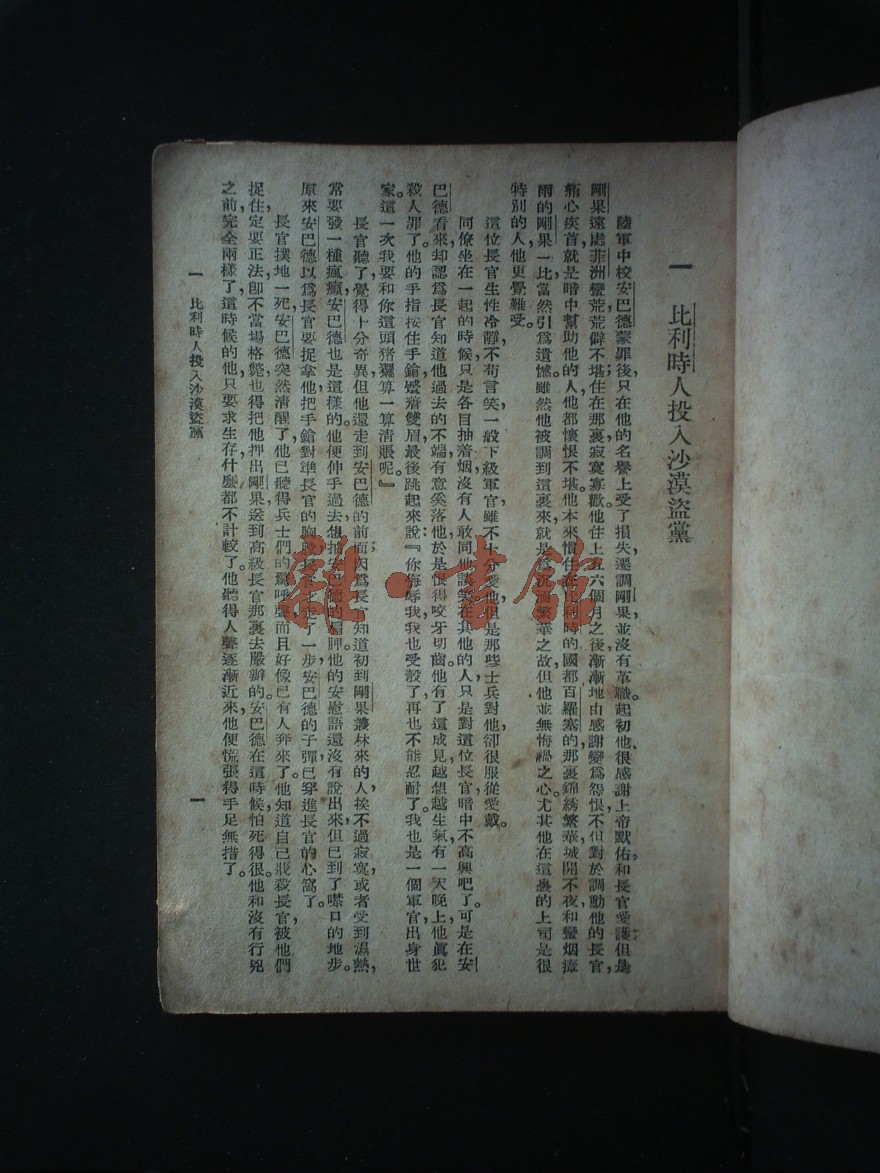 一　比利時人投入沙漠盜黨
陸軍中校安巴德蒙罪後，只在他的名譽上受了損失，遷調剛果，並沒有革職。起初他很感謝上帝默佑，和長官愛護；但是
剛果遠處非洲，蠻荒荒僻不堪，住在那裏，寂寞寡歡。他住上五六個月之後，漸漸地由感謝變爲怨恨，不但對於調動他的長官，
痛心疾首，就是暗中幫助他的人，他都懷恨不堪。他本來慣住在比利時的國都百羅塞的，那裏錦綉繁華，城開不夜，和蠻烟瘴
雨的剛果一比，當然引爲遺憾。雖然他被調到這裏來，就是爲沉湎繁華之故，但他並無悔禍之心。尤其他在這裏的上司是很
特別的人，他更覺難受。
這位長官生性冷靜，不苟言笑，一般下級軍官雖不十分愛他，但是那些士兵對他卻很服從愛戴。
同僚坐在一起的時候，只是各自抽着烟，沒有人敢同他談笑，在其他的人，只是對這位長官暗中不高興吧了。可是在安
巴德看來，却認爲長官知道他過去的不端，有意奚落他，於是恨得咬牙切齒。他有了這成見，越想越生氣，有一天晚上，他眞犯
殺人罪了。他的手指按住手鎗，蹙着雙眉，最後跳起來說：『你侮辱我，我也受彀了，再也不能忍耐了。我也是一個軍官出身世
家，這一次我要和你這頭猪玀算一算清賬呢。』
長官聽了，覺得十分奇異，但他還走到安巴德的前面，因爲長官知道初到剛果叢林來的人，挨不過寂寞，或者受到濕熱，
常要發一種瘋癲，安巴德也是這樣的。他便伸手過去，想拍安巴德的肩胛，他的安慰語還沒有說出來，但已到了噤口的地步。
原來安巴德以爲長官要捉拿他，把手鎗對準長官的胸膛，長官才走了一步，安巴德的子彈已穿進長官的心窩了。
長官撲地一死，安巴德突然清醒了，他已聽得兵士們的驚呼聲，而且好像已有人奔來了。他知道自己戕殺長官，被他們
捉住，定要正法，卽不當場格斃，也得把他押出剛果，送到高級長官那裏去嚴辦的。安巴德在這時候，怕死得很，他和沒有行兇
之前，完全兩樣了，這時候的他，只要求生存，什麼都不計較了。他聽得人聲逐漸近來，他便慌張得手足無措了。
一　比利時人投入沙漠盜黨
一
龍·書館